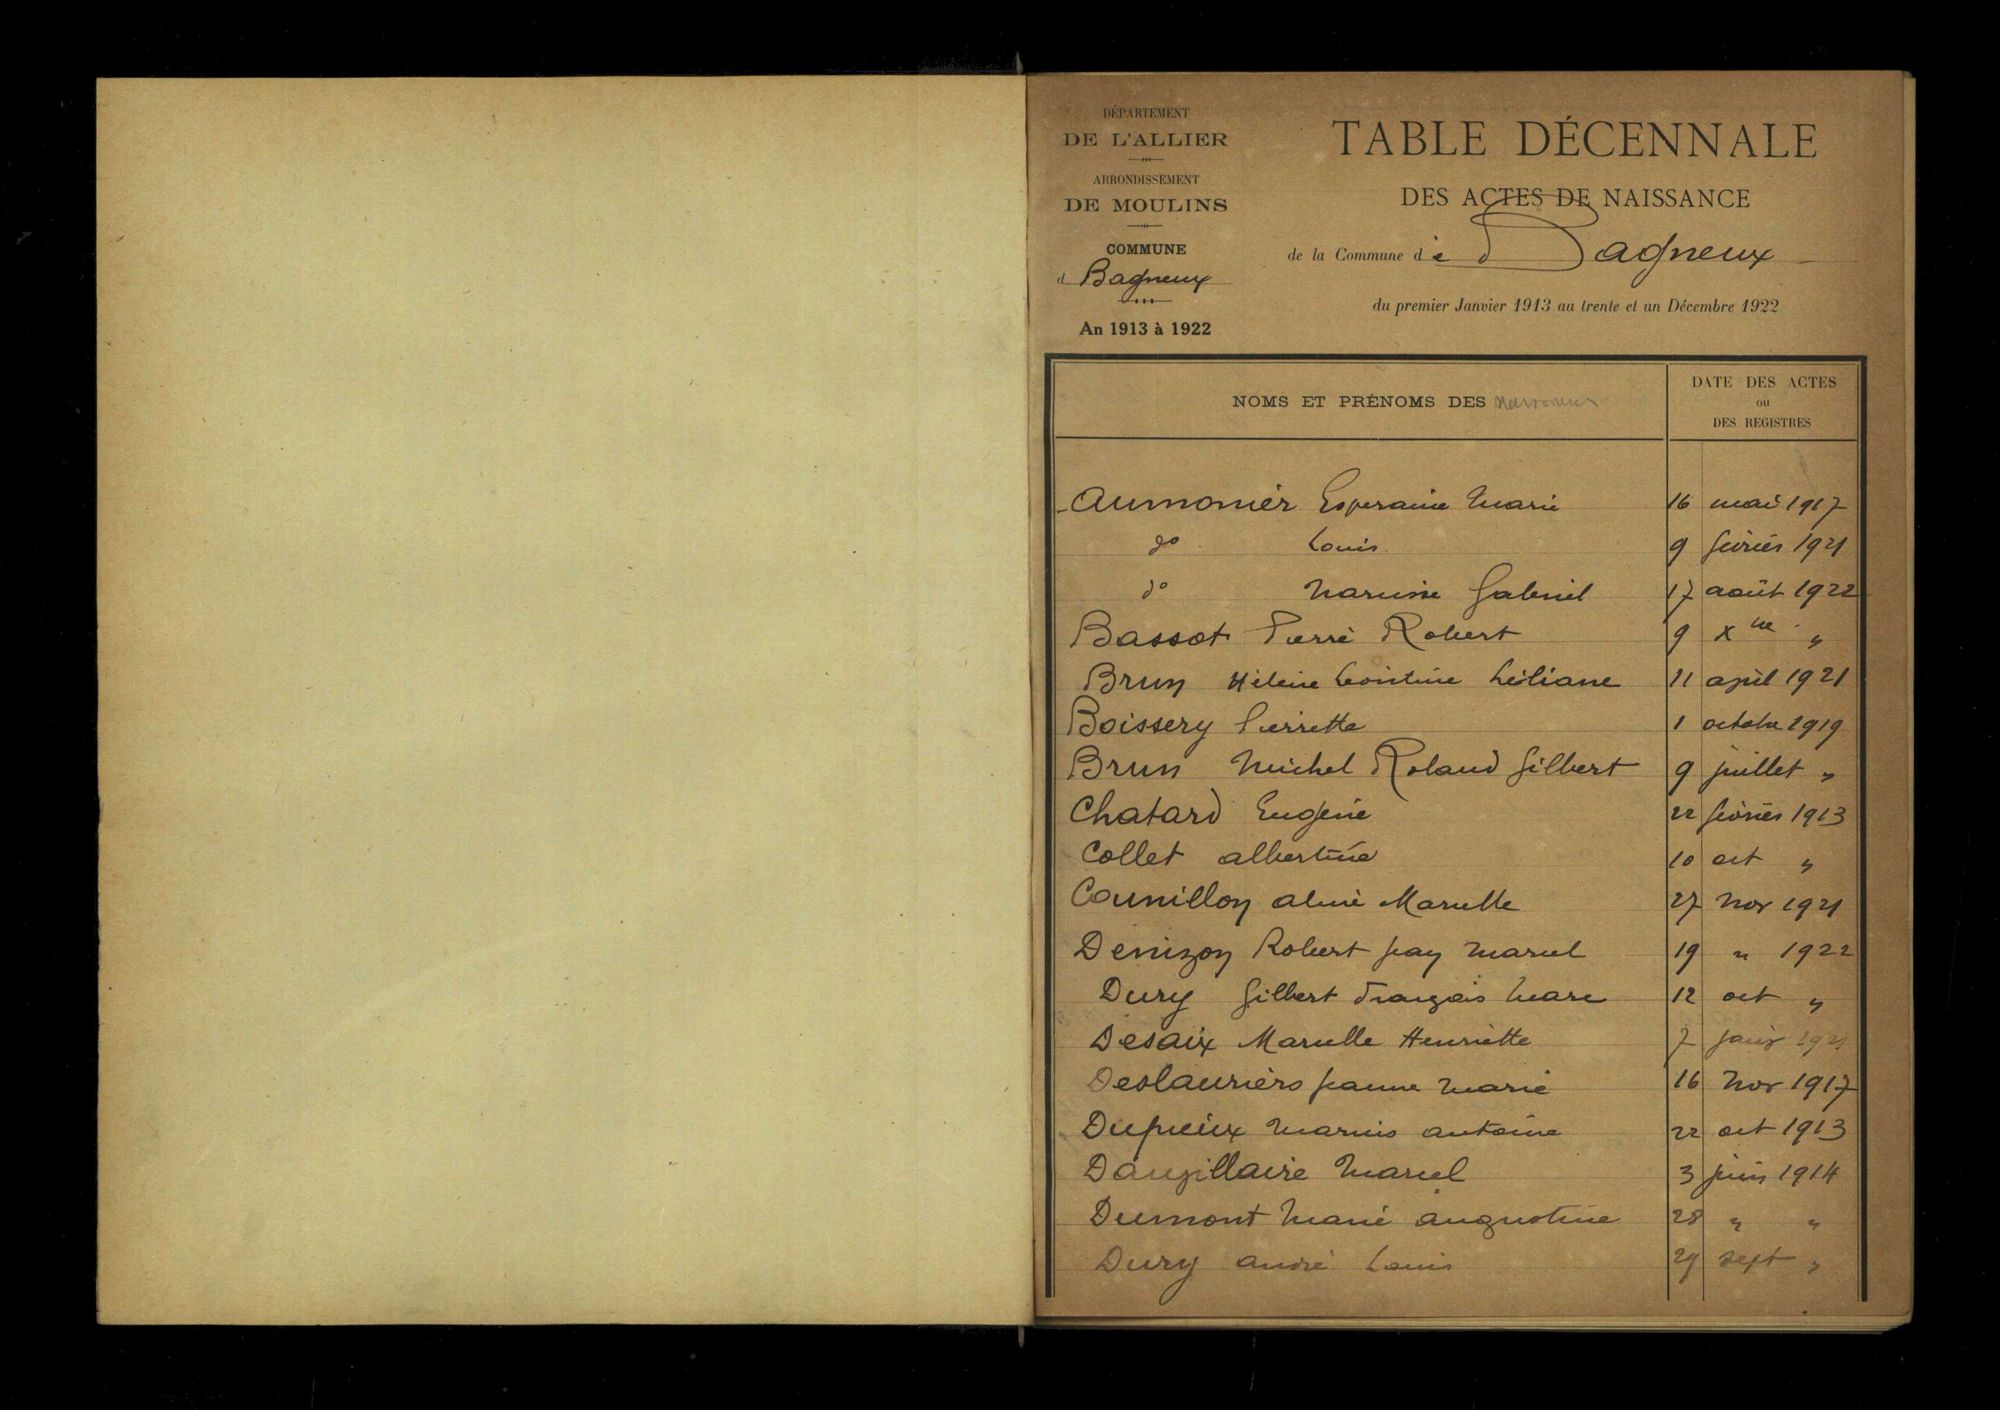 DÉPARTEMENT
DE L'ALLIER
ARRONDISSEMENT
DE MOULINS
COMMUNE
d Bagneux
An 1913 à 1922
TABLE DÉCENNALE
DES ACTES DE NAISSANCE
de la Commune de Bagneux
du premier Janvier 1913 au trente et un Décembre 1922
NOMS ET PRÉNOMS DES
DATE DES ACTES
ou
DES REGISTRES
Aumonier Esperance Marie 16 mai 1917
do Louis 9 février 1921
do Narcisse Gabriel 17 août 1922
Bassot Pierre Robert 9 Xbre "
Brun Hélène Léontine Liliane 11 april 1921
Boissery Pierrette 1 octobre 1919
Brun Michel Roland Gilbert 9 juillet "
Chatard Eugénie 22 février 1913
Collet Albertine 10 oct "
Counillon Marcelle 27 nov 1921
Denizon Robert Jean Marcel 19 " 1922
Dury Gilbert François Marc 12 oct "
Desaix Marcelle Henriette 7 janv 1921
Deslauriers Jeanne Marie 16 nov 1917
Marius Antoine 22 oct 1913
Marcel 3 juin 1914
Dumont Marie Augustine 28 " "
Dury André Louis 29 sept "